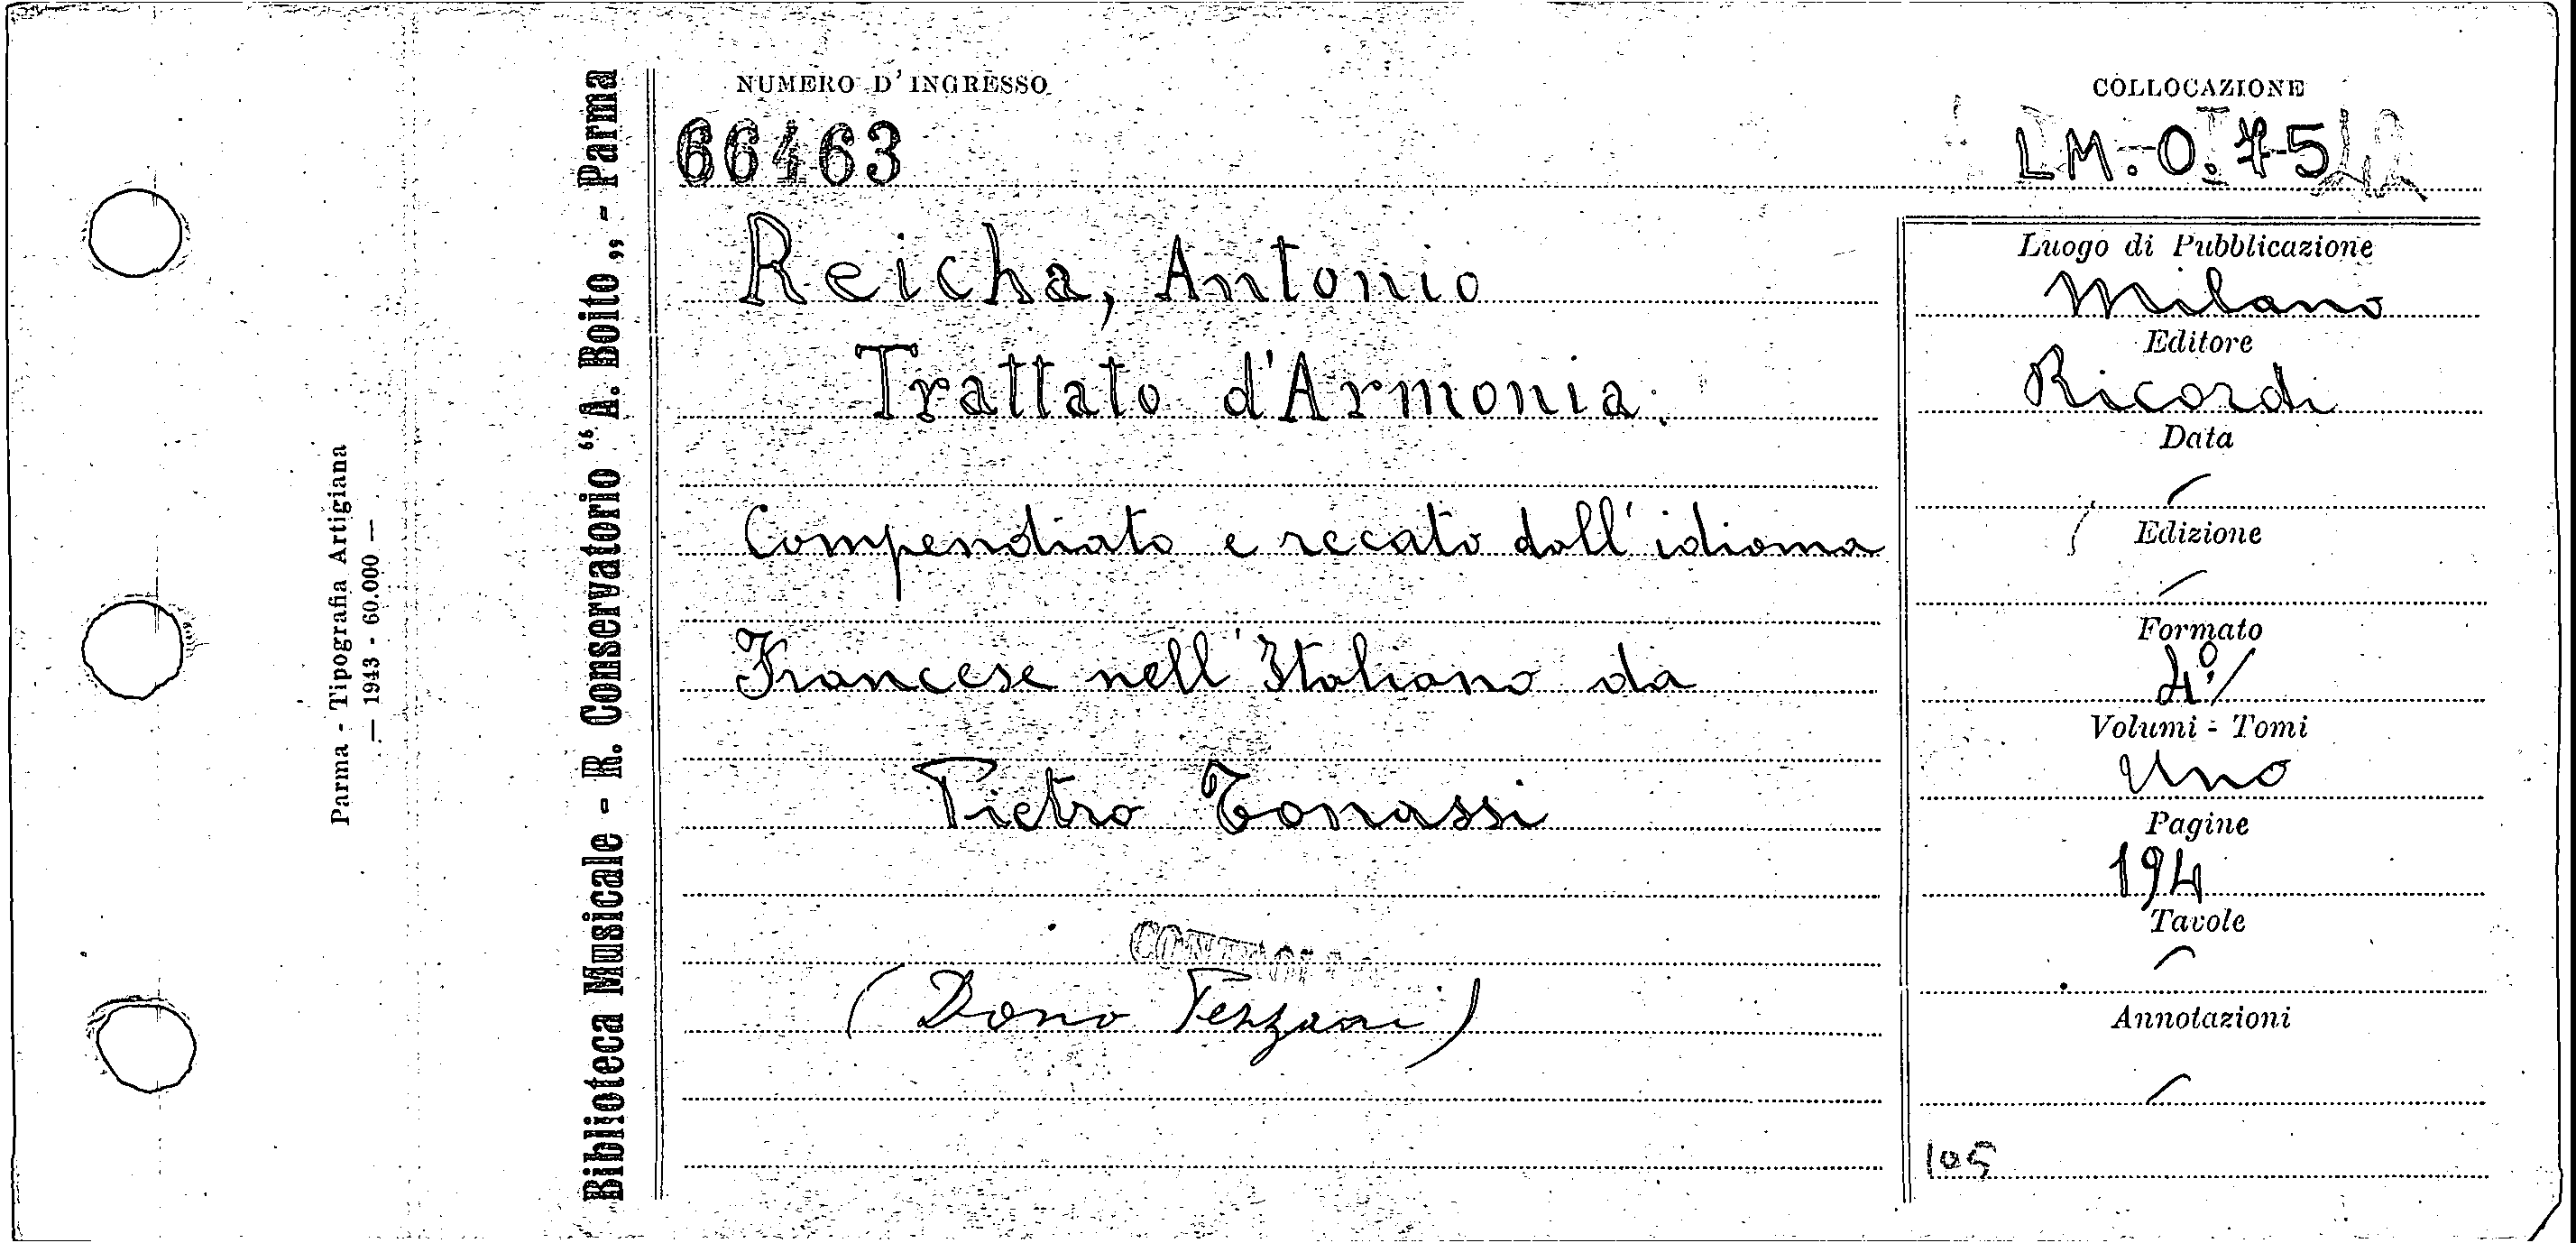 NUMERO D'INGRESSO
66463
COLLOCAZIONE
LM.O.75
Reicha, Antonio
Trattato d'Armonia.
Compendiato e recato dall'idioma
Francese nell'Italiano da
Pietro Tonassi
(Dono Tezzani)
Luogo di Pubblicazione
Milano
Editore
Ricordi
Data
Edizione
Formato
4º/
Volumi - Tomi
Uno
Pagine
194
Tavole
Annotazioni
105
Biblioteca Musicale - R. Conservatorio “A. Boito„ - Parma
Parma - Tipografia Artigiana
— 1943 - 60.000 —